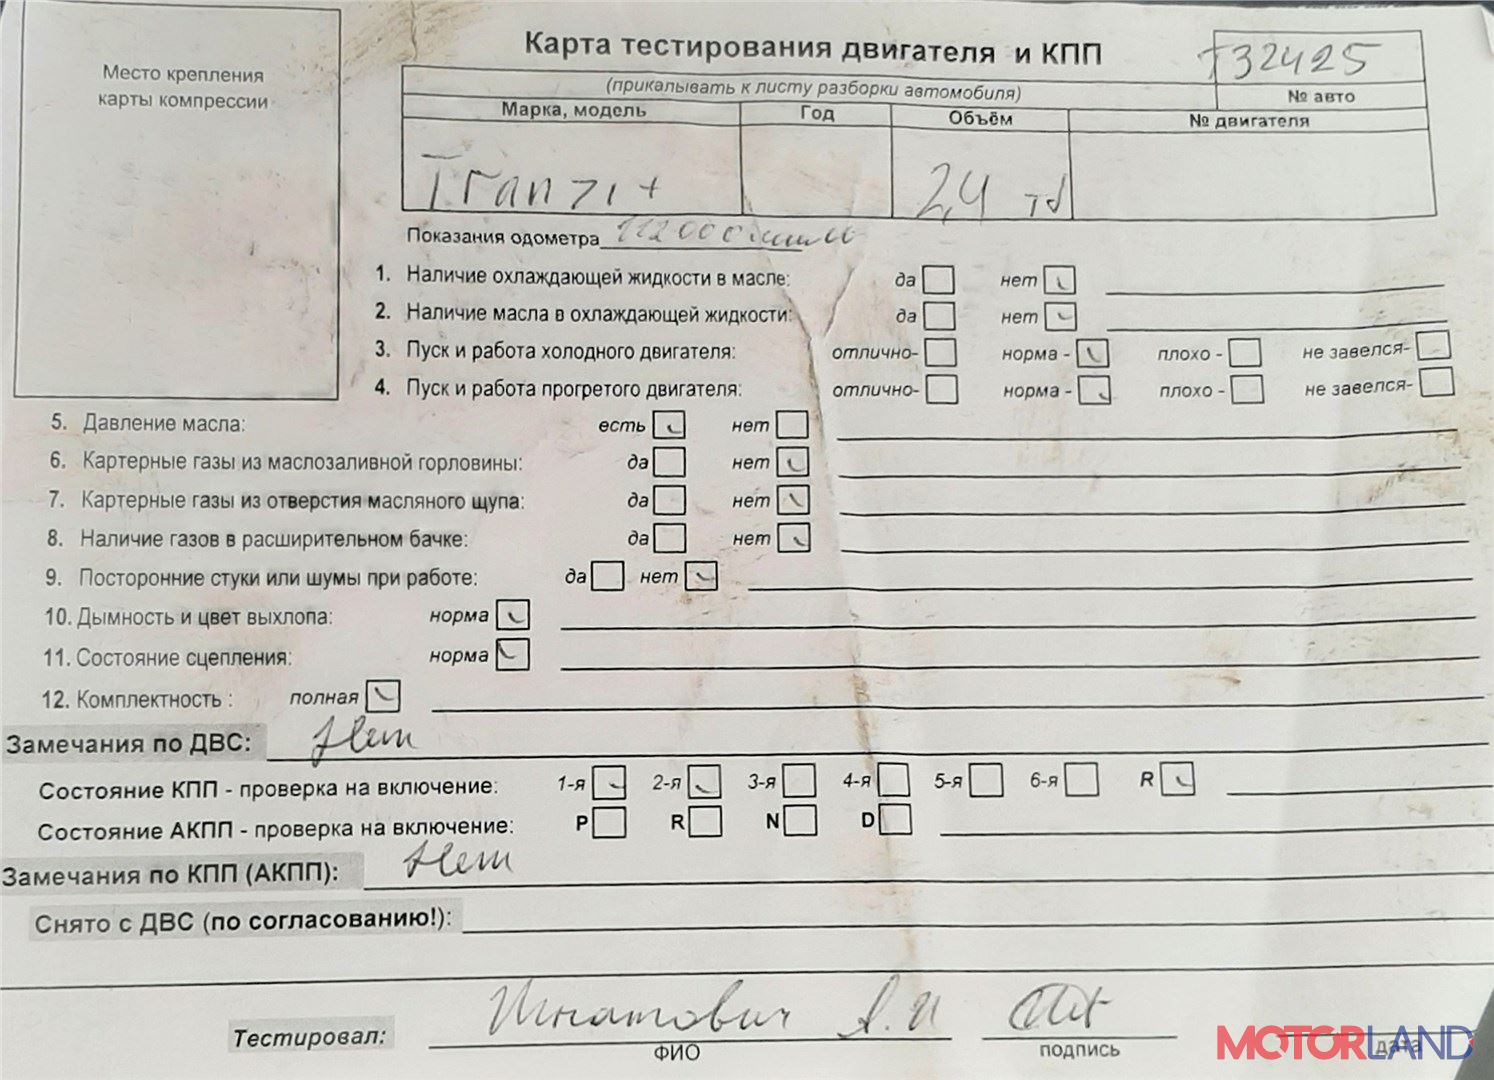 Место крепления
карты компрессии
Карта тестирования двигателя и КПП
Т32425
(прикалывать к листу разборки автомобиля)
№ авто
Марка, модель Год Объём № двигателя
Tranzit 2,4 td
Показания одометра 112000
1. Наличие охлаждающей жидкости в масле: да нет
2. Наличие масла в охлаждающей жидкости: да нет
3. Пуск и работа холодного двигателя: отлично- норма - плохо - не завелся-
4. Пуск и работа прогретого двигателя: отлично- норма - плохо - не завелся-
5. Давление масла: есть нет
6. Картерные газы из маслозаливной горловины: да нет
7. Картерные газы из отверстия масляного щупа: да нет
8. Наличие газов в расширительном бачке: да нет
9. Посторонние стуки или шумы при работе: да нет
10. Дымность и цвет выхлопа: норма
11. Состояние сцепления: норма
12. Комплектность : полная
Замечания по ДВС: Нет
Состояние КПП - проверка на включение: 1-я 2-я 3-я 4-я 5-я 6-я R
Состояние АКПП - проверка на включение: P R N D
Замечания по КПП (АКПП): Нет
Снято с ДВС (по согласованию!):
Тестировал: Игнатович А.И
ФИО подпись дата
MOTORLAND